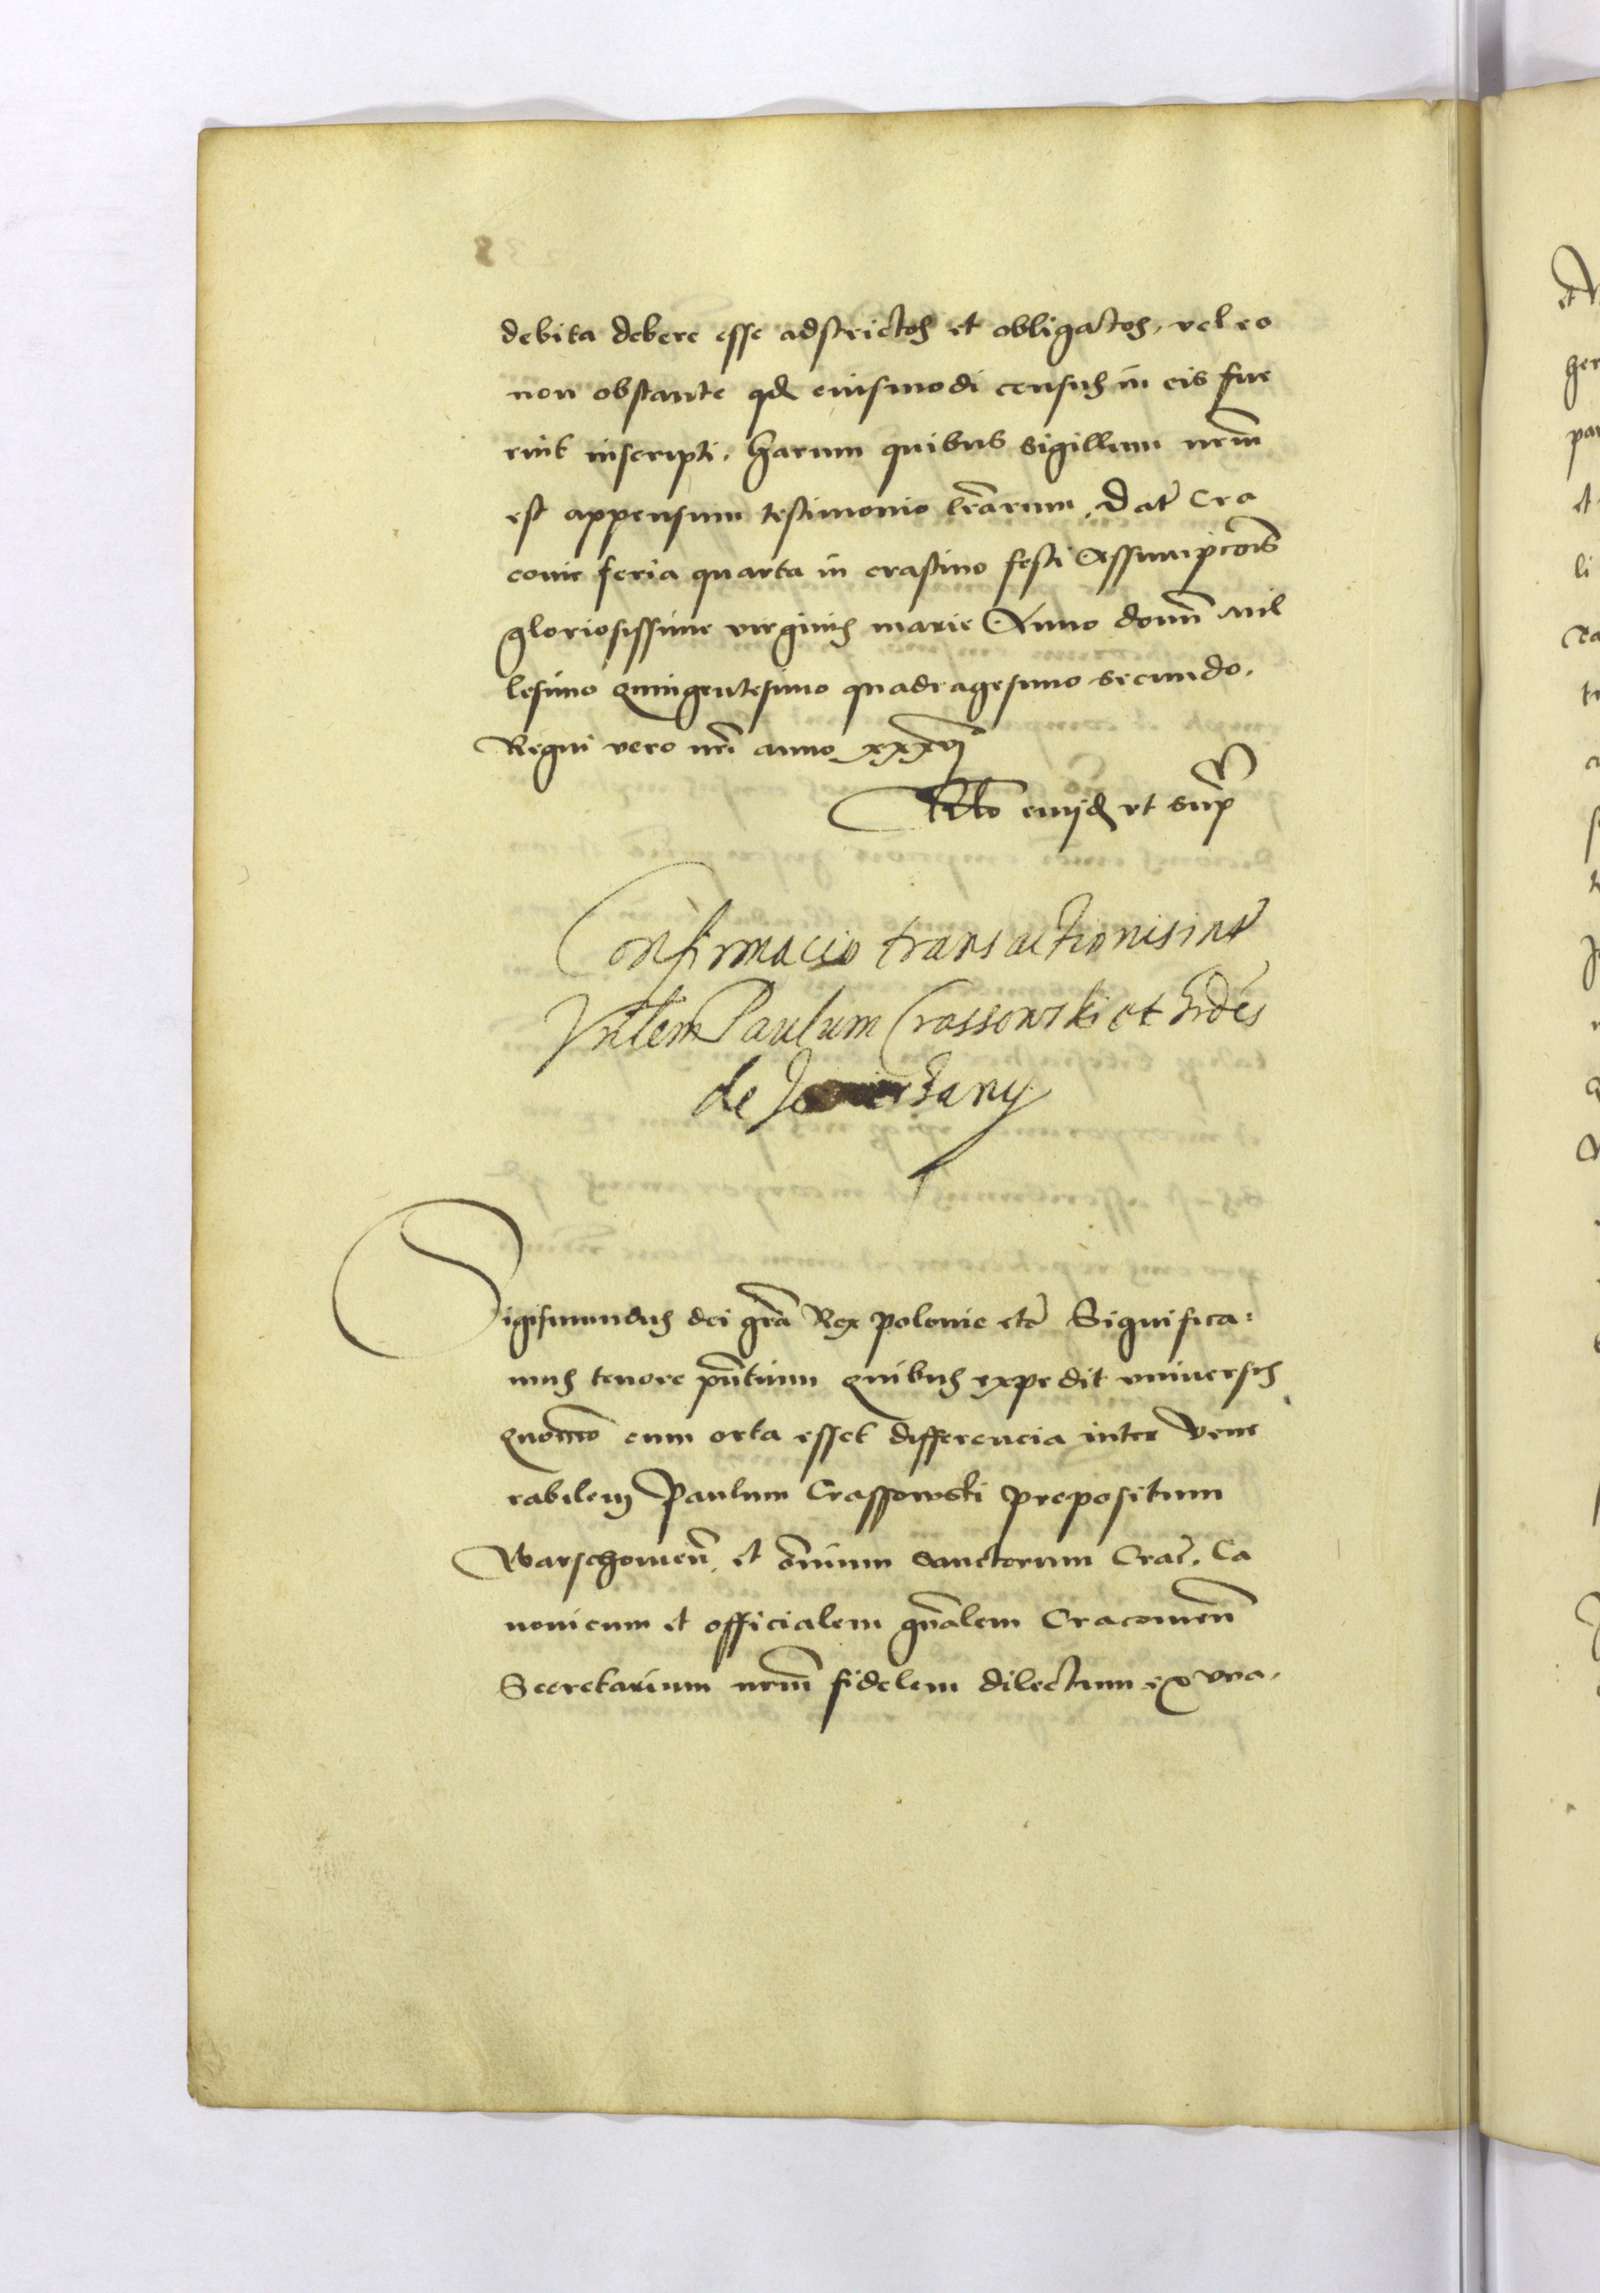 debita debere esse adstrictos et obligatos, vel eo
non obstante qd eiusmodi census in eis fue
rint inscripti. Harum quibus sigillum nrm
est appensum testimonio lrarum. Dat Cra
covie feria quarta in crastino festi Assumpcois
gloriosissime virginis marie Anno domi mil
lesimo quingentesimo quadragesimo secundo.
Regni vero nri anno xxxvj
Rlo eiusd ut sup
Confirmacio transactionis int
Vnlem Paulum Crassowski et hrdes
de
Sigismundus dei gra Rex polonie etc Significa:
mus tenore pntium quibus expedit universis
Quomo cum orta esset differencia inter vene
rabilem Paulum Crassowski prepositum
Warschovien, et omnium sanctorum Crac. Ca
nonicum et officialem gnalem Cracovien
Secretarium nrm fidelem dilectum ex una.